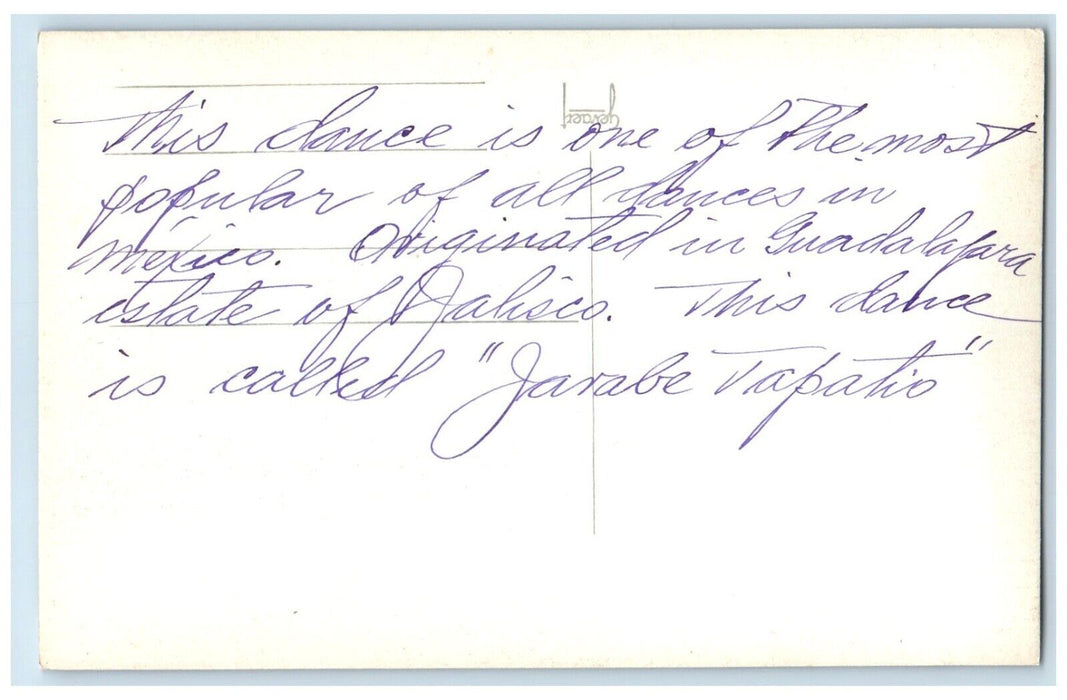 Gevaert
This dance is one of the most
popular of all dances in
México. Originated in Guadalajara
estate of Jalisco. This dance
is called "Jarabe Tapatio"